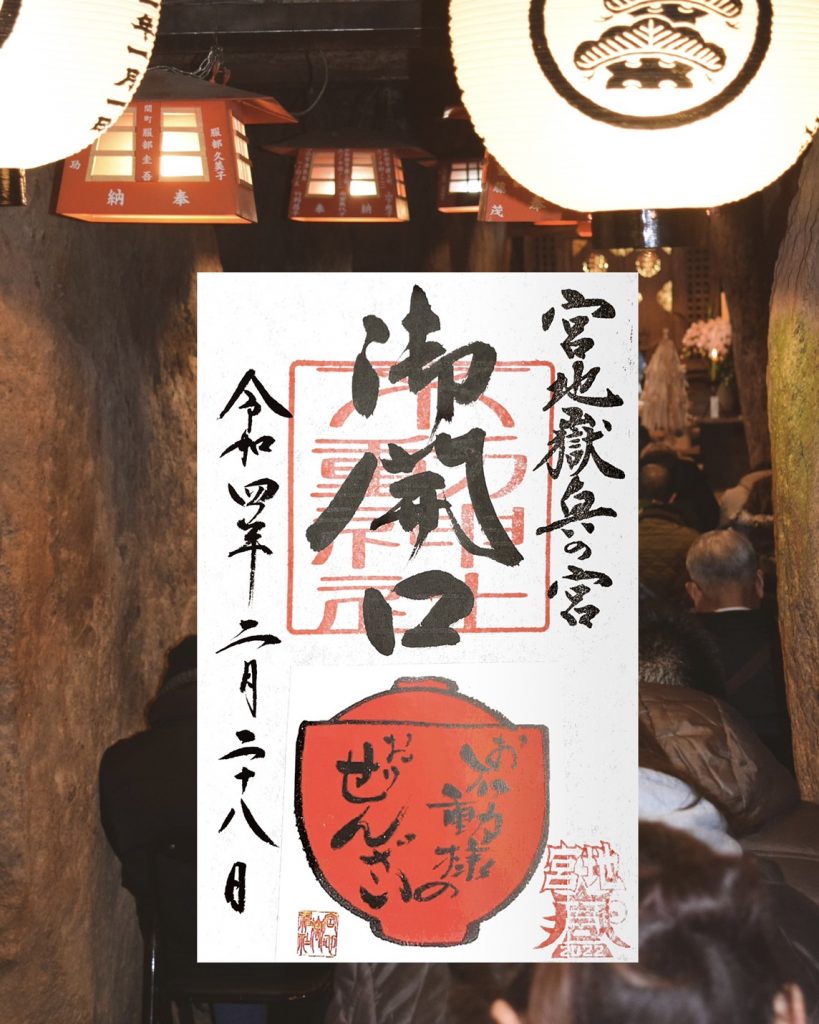 年一月一
間町 服部圭吾
服部久美子
奉納
奉納
宮地嶽奥の宮
御開口
令和四年 二月二十八日
お不動様の
おぜんざい
宮地嶽
2022